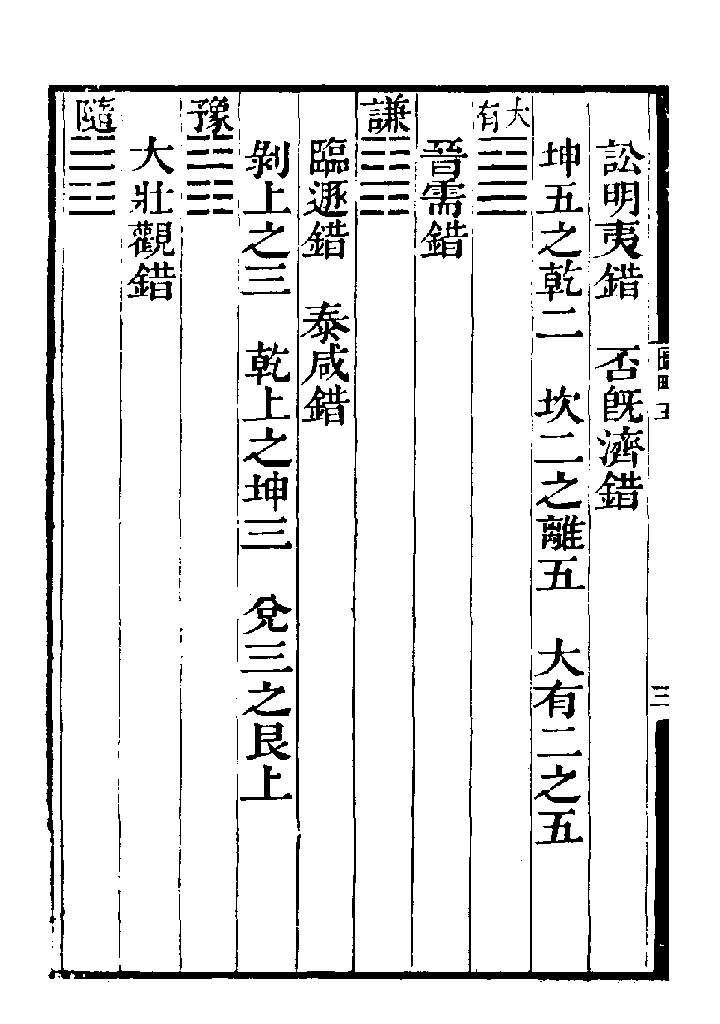 訟明夷錯　否旣濟錯
坤五之乾二　坎二之離五　大有二之五
大有
晉需錯
謙
臨遯錯　泰咸錯
剝上之三　乾上之坤三　兌三之艮上
豫
大壯觀錯
隨
圖略五
三